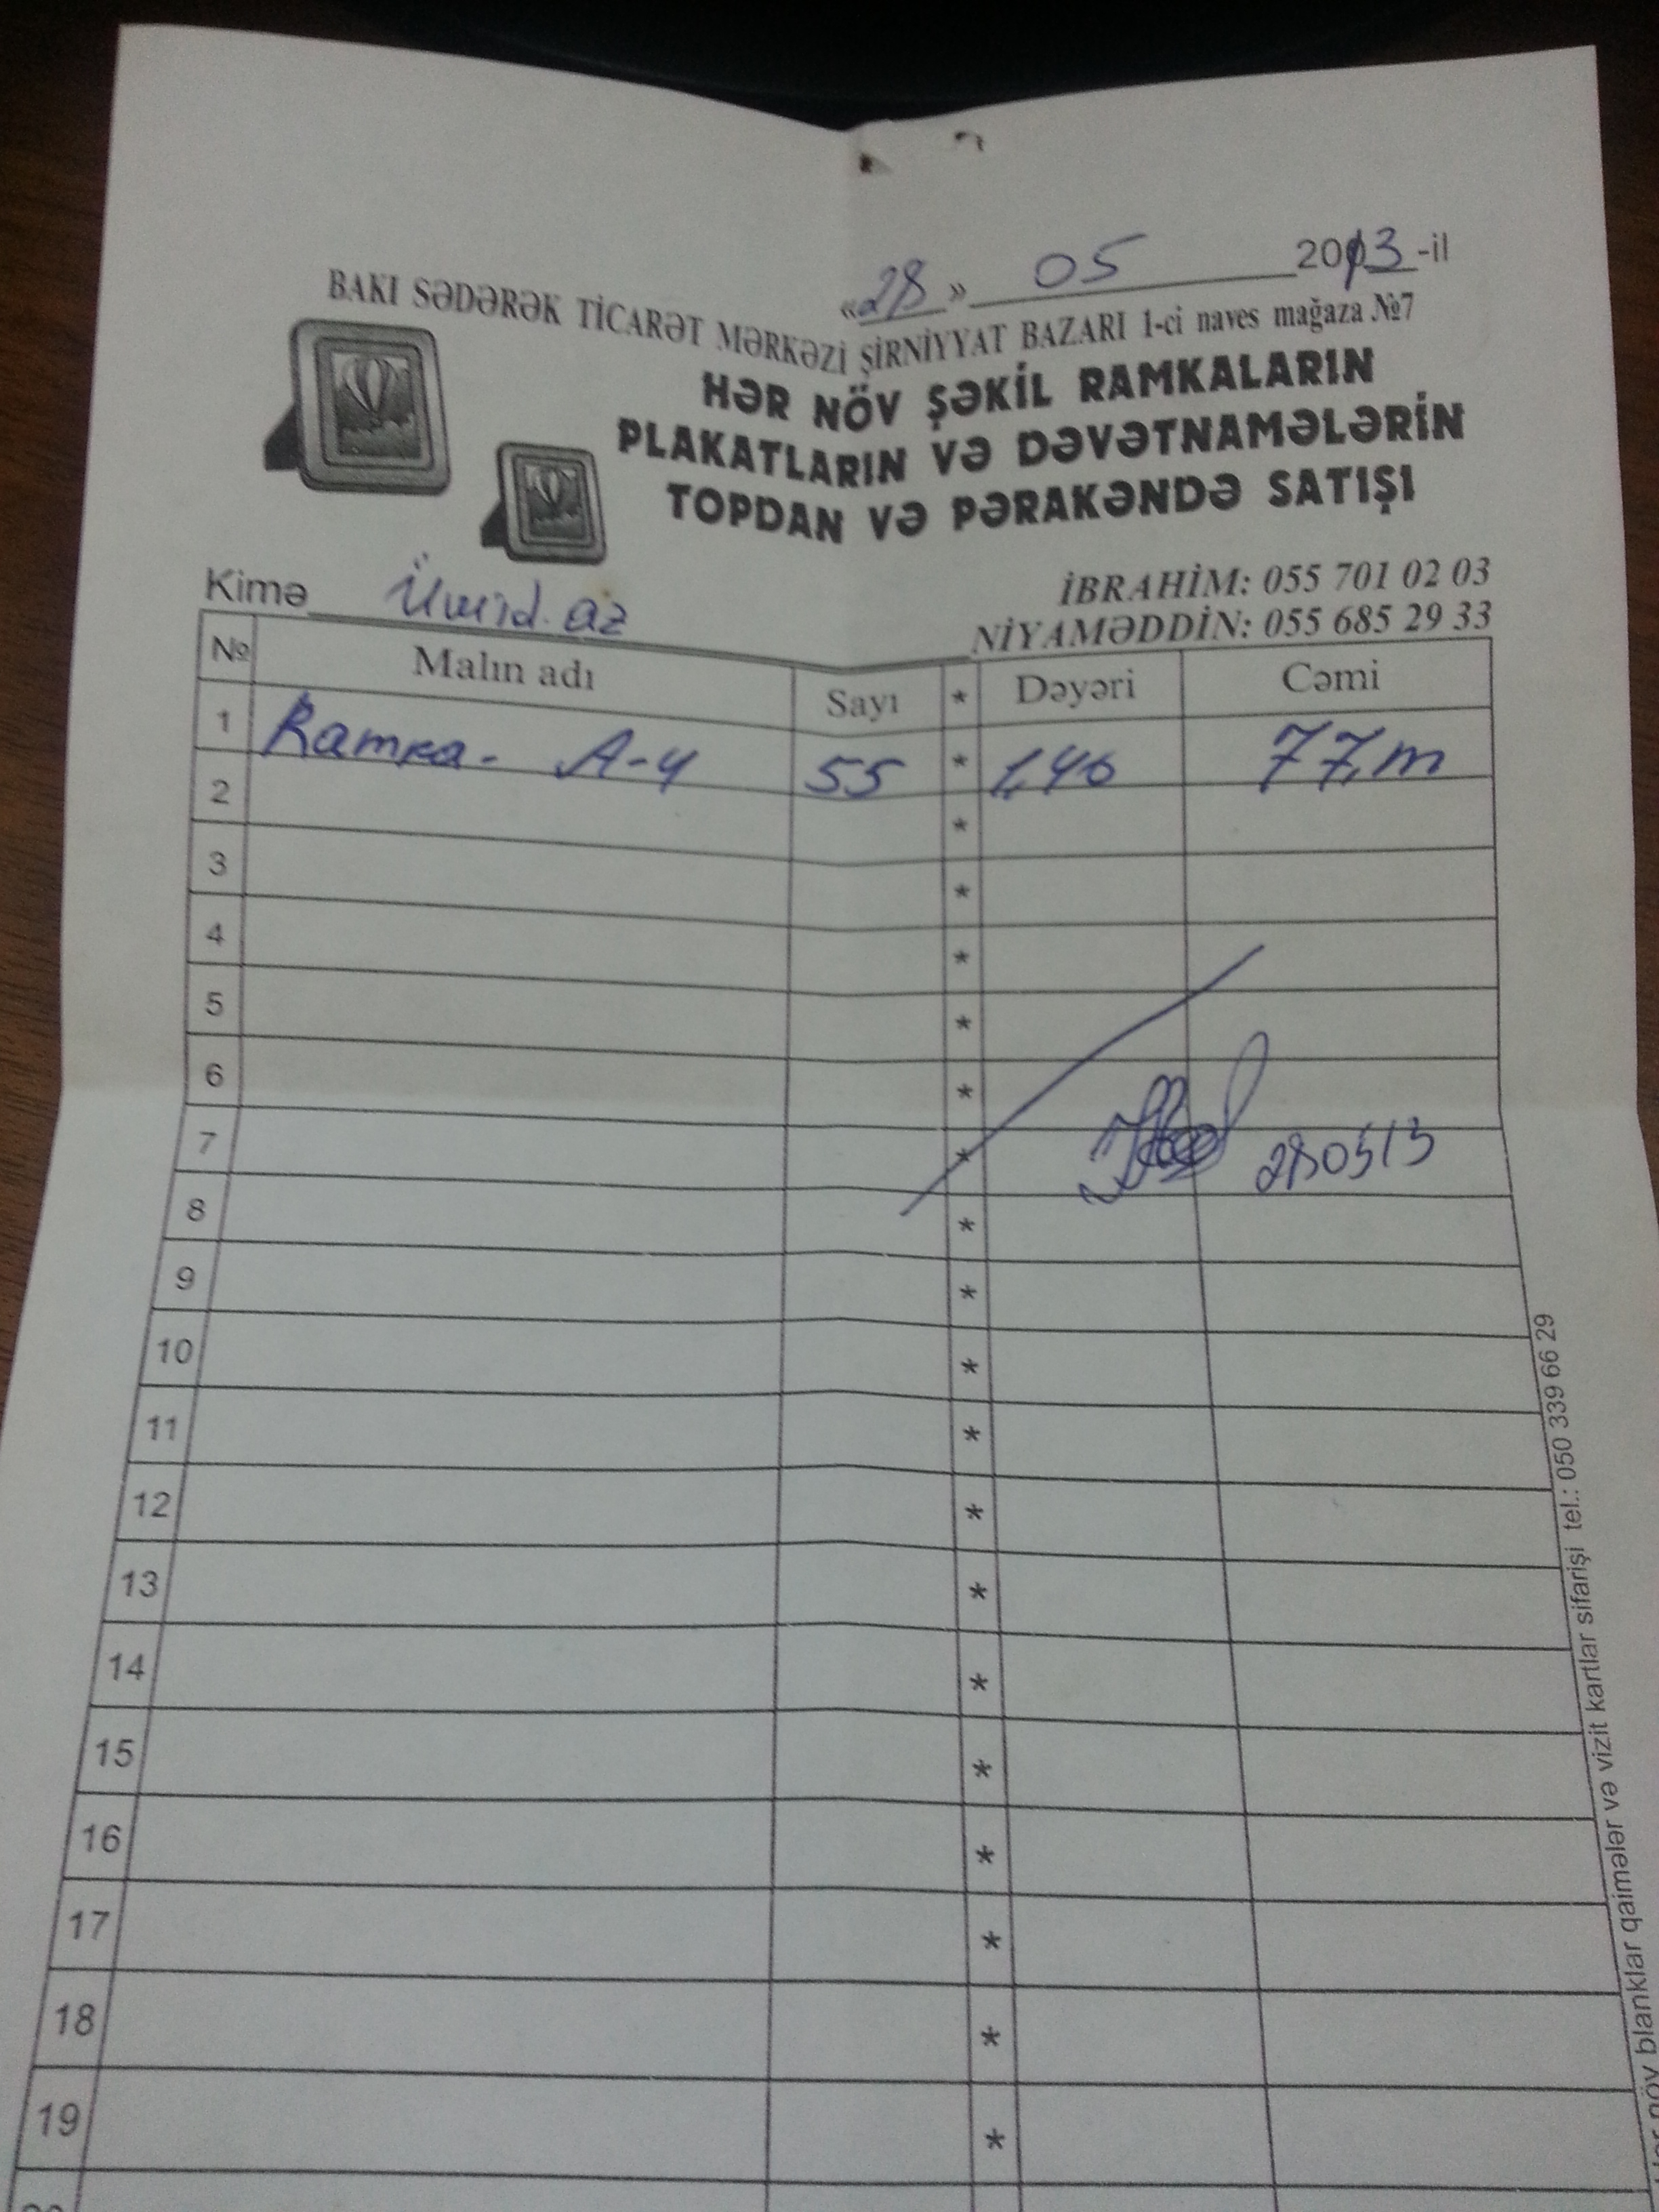 «28» 05 2013-il
BAKI SƏDƏRƏK TİCARƏT MƏRKƏZİ ŞİRNİYYAT BAZARI 1-ci naves mağaza №7
HƏR NÖV ŞƏKİL RAMKALARIN
PLAKATLARIN VƏ DƏVƏTNAMƏLƏRİN
TOPDAN VƏ PƏRAKƏNDƏ SATIŞI
İBRAHİM: 055 701 02 03
NİYAMƏDDİN: 055 685 29 33
Kimə Ümid.az
№ Malın adı Sayı * Dəyəri Cəmi
1 Ramka- A-4 55 * 1,40 77,m
2 *
3 *
4 *
5 *
6 *
7 * 280513
8 *
9 *
10 *
11 *
12 *
13 *
14 *
15 *
16 *
17 *
18 *
19 *
növ blanklar qaimələr və vizit kartlar sifarişi tel.: 050 339 66 29